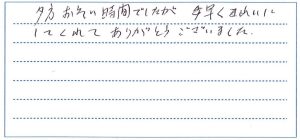 夕方おそい時間でしたが 手早くきれいに
してくれてありがとうございました。